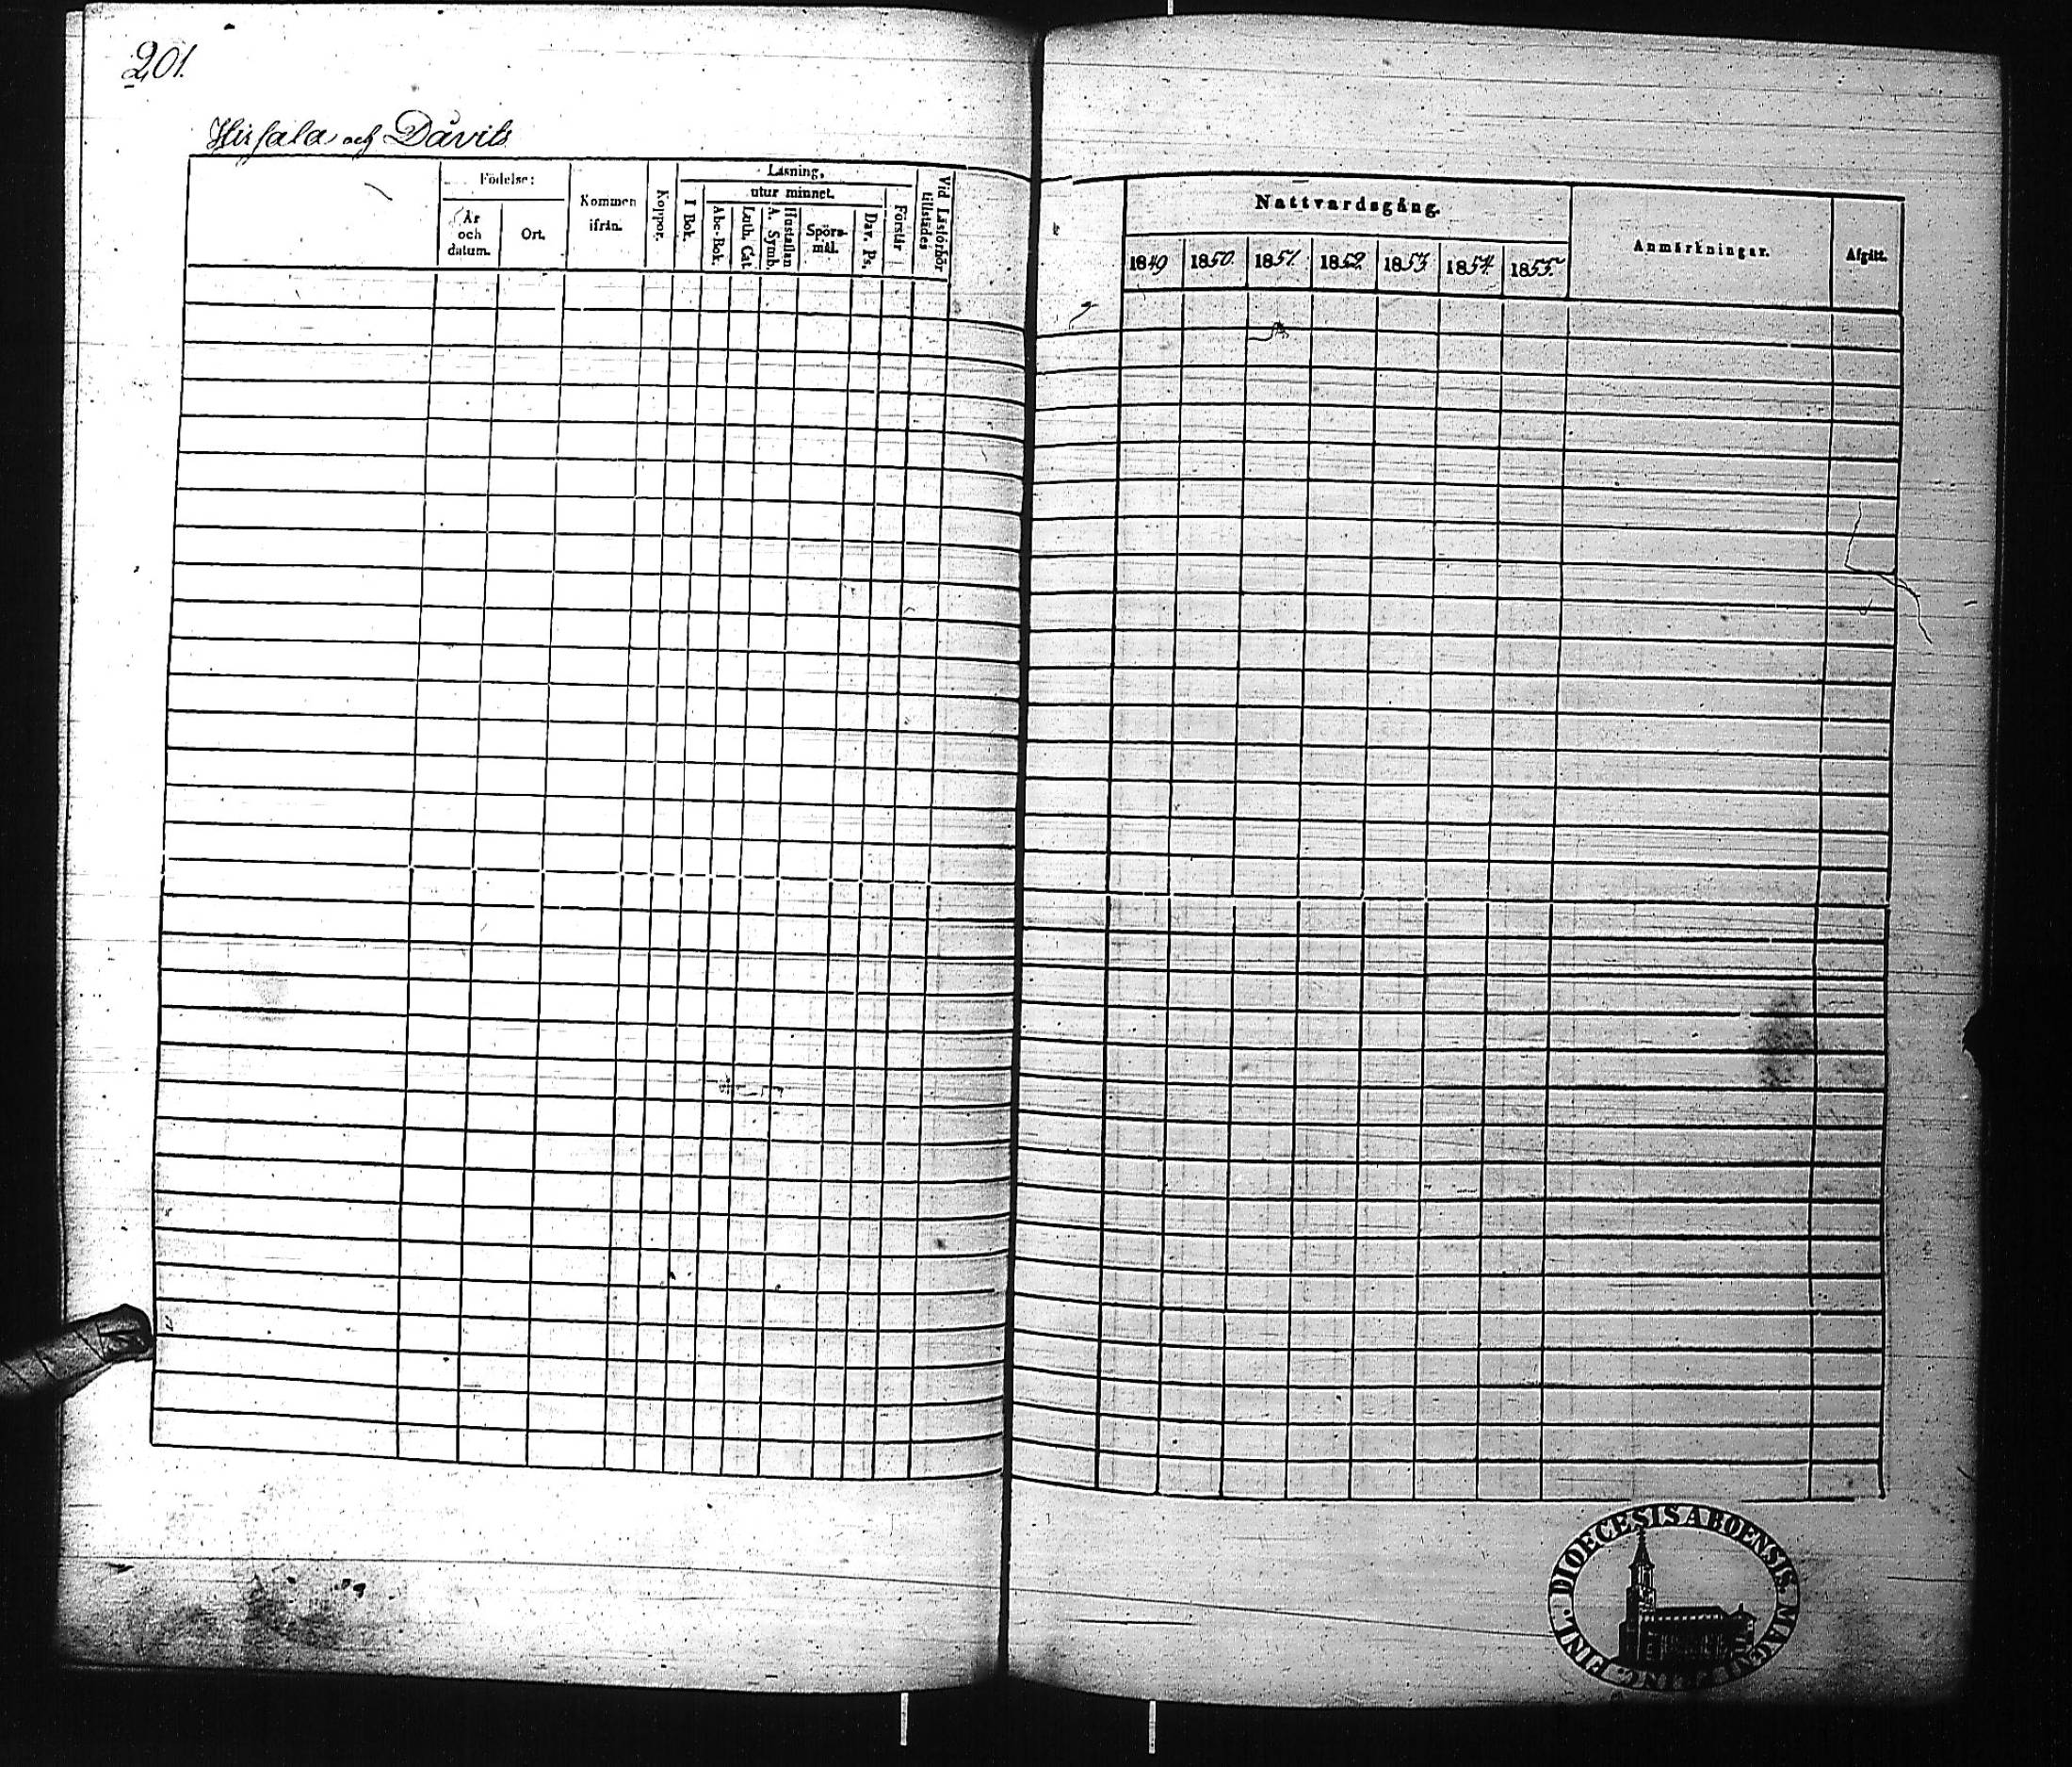 201.
Hirsala och Dåvits
Födelse:
År
och
datum.
Ort.
Kommen
ifrån.
Koppor.
Läsning,
I Bok.
utur minnet.
Abc-Bok.
Luth. Cat.
Hustaflan
A. Symb.
Spörs-
mål.
Dav. Ps.
Förstår
Vid Läsförhör
tillstädes
Nattvardsgång.
1849 1850. 1851. 1852. 1853. 1854. 1855.
Anmärkningar.
Afgått.
DIOECESIS ABOENSIS. MAGNI PRINC. FINL.